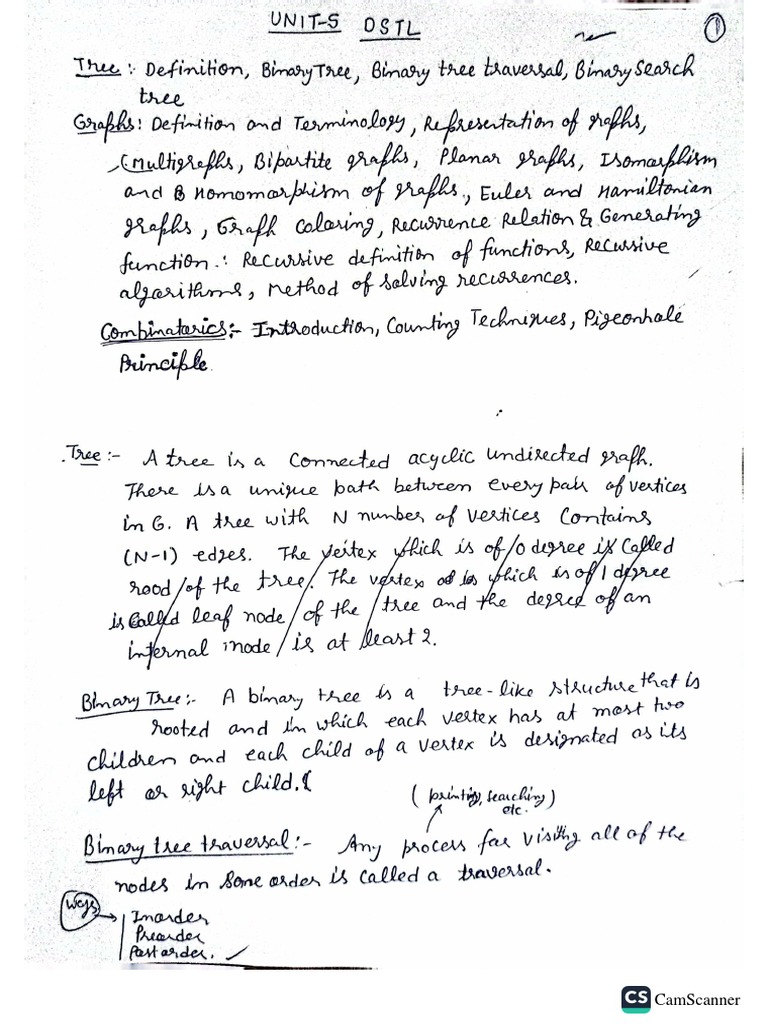 UNIT-5 DSTL
1
Tree:- Definition, Binary Tree, Binary tree traversal, Binary Search
tree
Graphs: Definition and Terminology, Representation of graphs,
Multigraphs, Bipartite graphs, Planar graphs, Isomorphism
and Homomorphism of graphs, Euler and Hamiltonian
graphs, Graph Coloring, Recurrence Relation & Generating
function:- Recursive definition of functions, Recursive
algorithms, Method of solving recurrences.
Combinatorics:- Introduction, Counting Techniques, Pigeonhole
Principle
Tree:- A tree is a connected acyclic undirected graph.
There is a unique path between every pair of vertices
in G. A tree with N number of vertices Contains
(N-1) edges. The vertex which is of 0 degree is called
rood of the tree. The vertex which is of 1 degree
is called leaf node of the tree and the degree of an
internal node is at least 2.
Binary Tree:- A binary tree is a tree-like structure that is
rooted and in which each vertex has at most two
children and each child of a vertex is designated as its
left or right child.
(printing, searching)
etc.
Binary tree traversal:- Any process for visiting all of the
nodes in some order is called a traversal.
Ways Inorder
Preorder
Postorder.
CS CamScanner